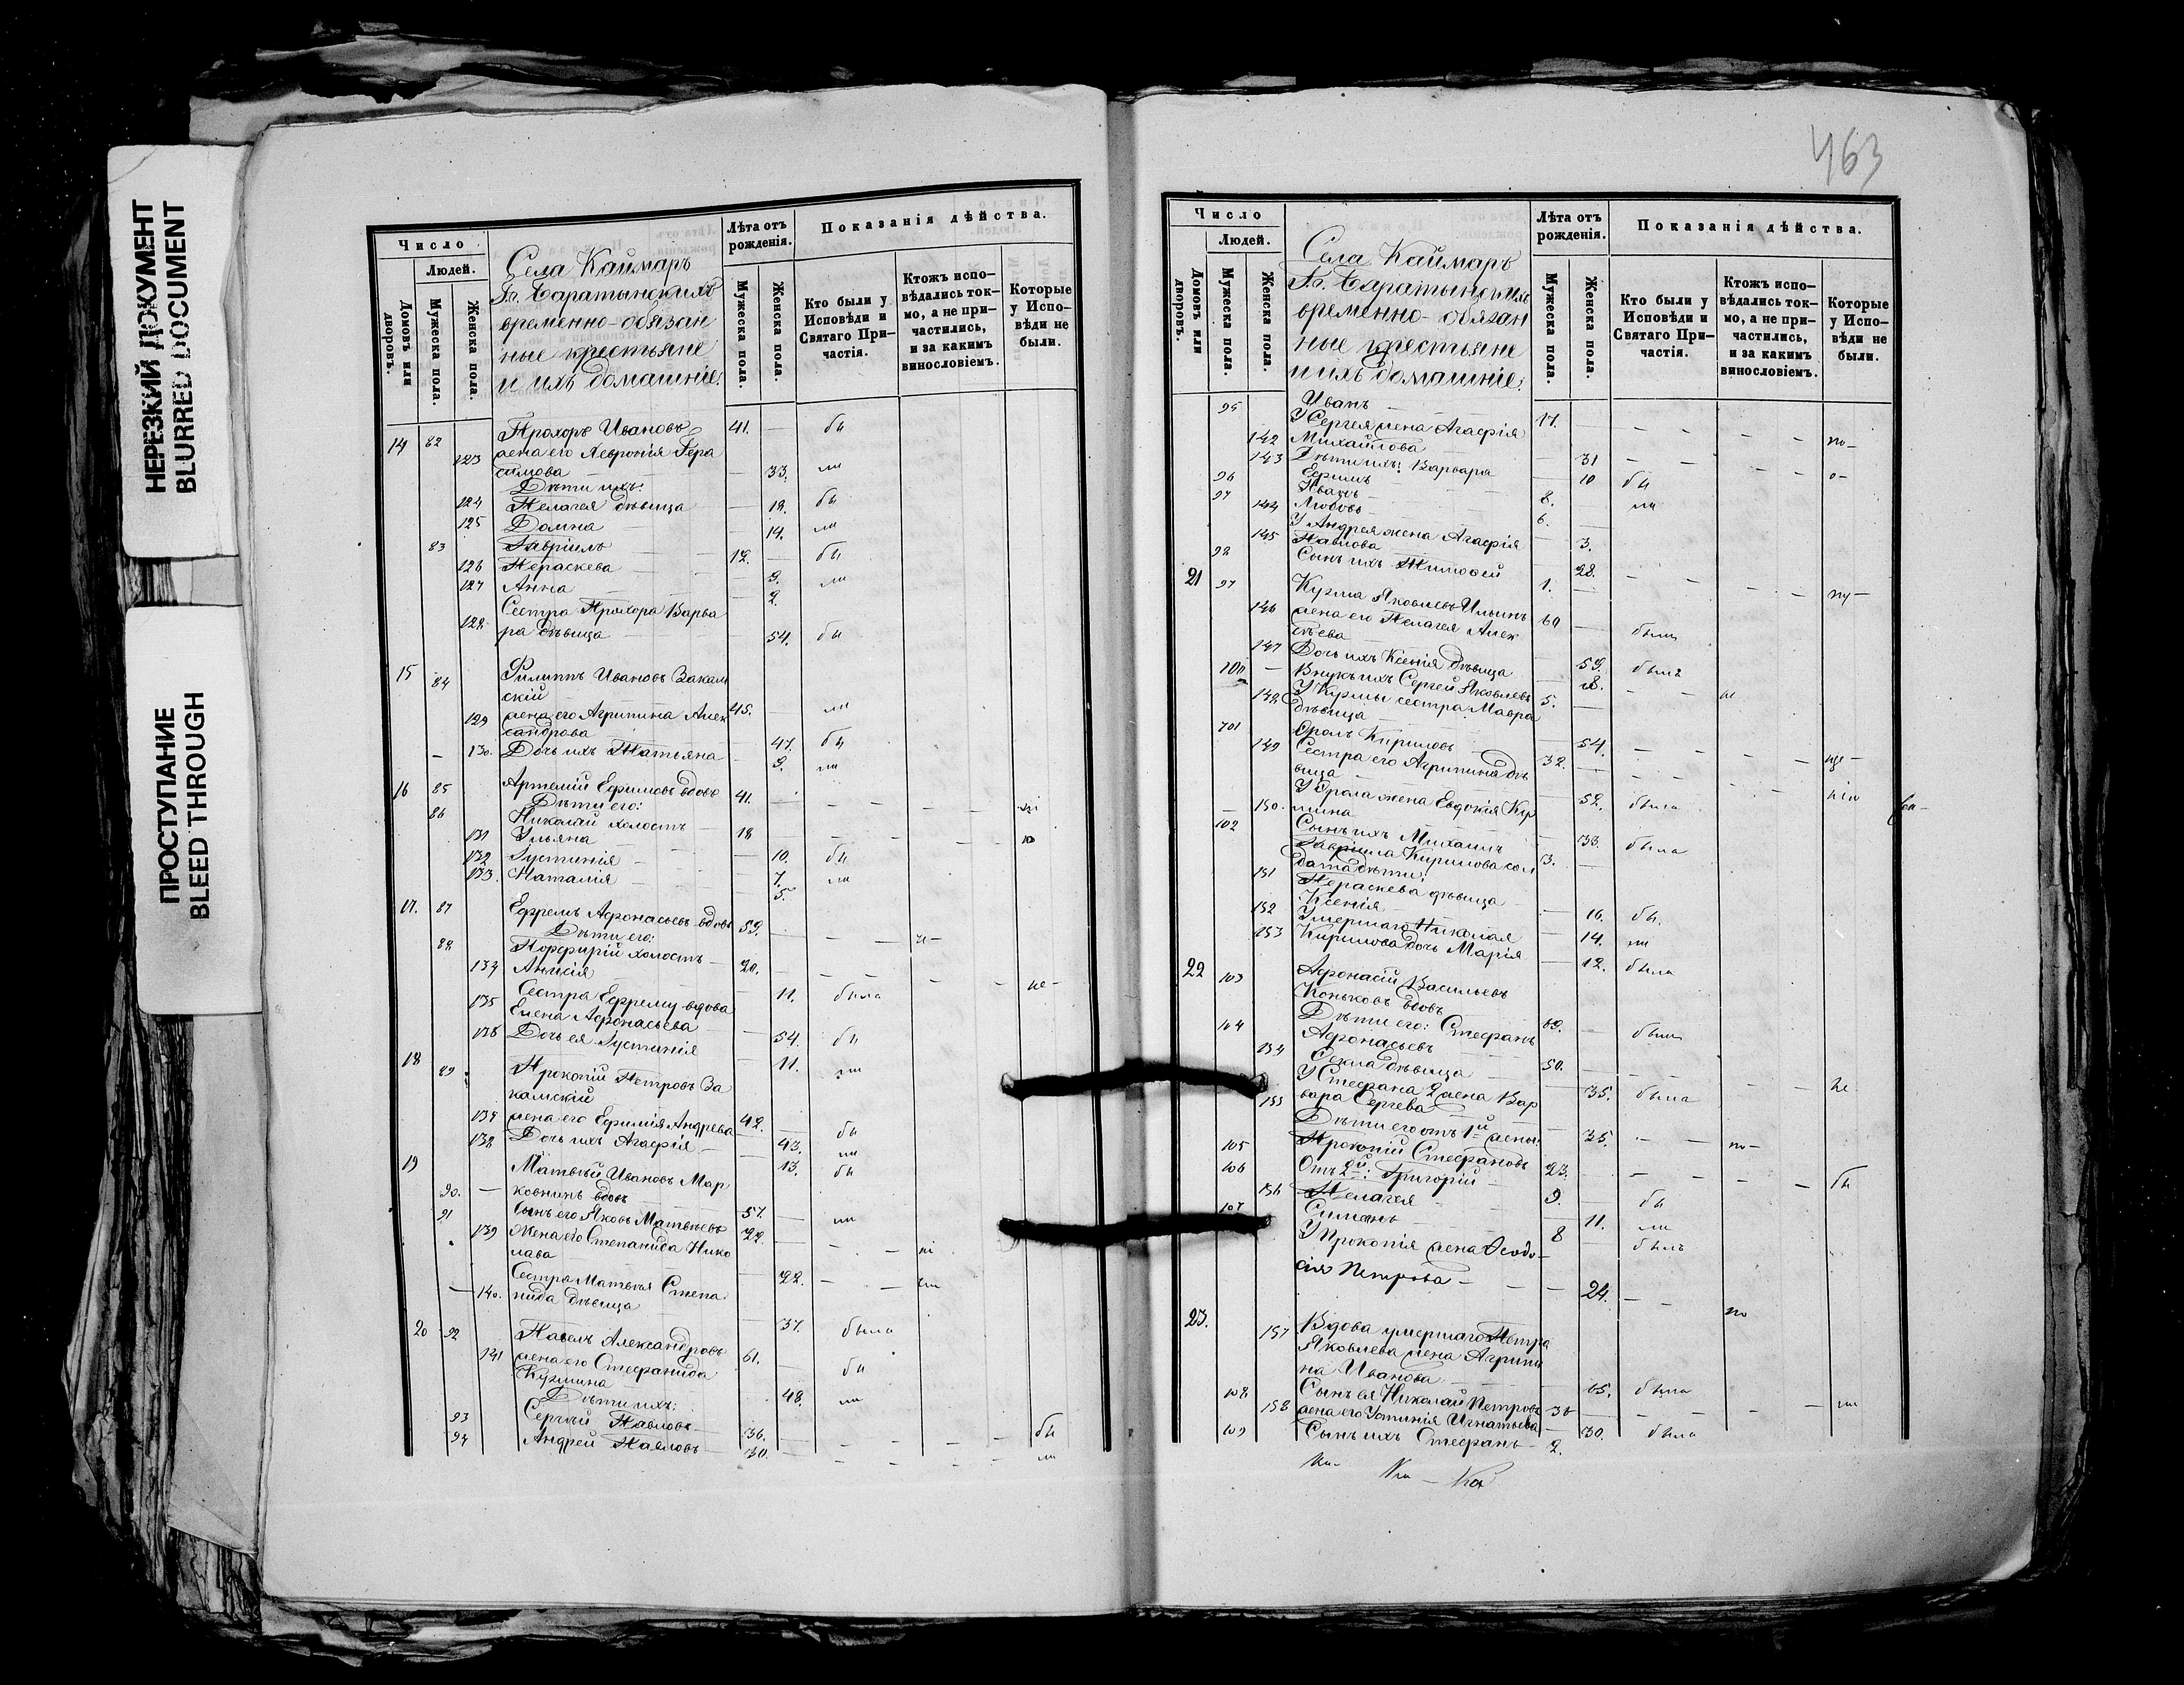 НЕРЕЗКИЙ ДОКУМЕНТ
BLURRED DOCUMENT
ПРОСТУПАНИЕ
BLEED THROUGH
Число
Людей.
Домовъ или дворовъ.
Мужеска пола.
Женска пола.
Села Каймаръ
Гг. Баратынскихъ
временно-обязан
ные крестьяне
и ихъ домашніе.
Лѣта отъ рожденія.
Мужеска пола.
Женска пола.
Показанія дѣйства.
Кто были у Исповѣди и Святаго При-частія.
Ктожъ испо-вѣдались ток-мо, а не при-частились, и за какимъ винословіемъ.
Которые у Испо-вѣди не были.
14 82 Прохоръ Ивановъ 41. — бы
123 жена его Хеврон​ія Гера
симова — 33. ли
Дѣти ихъ:
124 Пелагея дѣвица — 18. бы
125 Домна — 14. ли
83 Гавріилъ — 12. — бы
126 Параскева — 9. ли
127 Анна — 2.
Сестра Прохора Варва
128 ра дѣвица — 54. бы
15 84 Филиппъ Ивановъ Закам
скій 45. — ли
129 жена его Агрипина Алек
сандрова — 47. бы
130. Дочь ихъ Татьяна — 9. ли
16 85 Артемій Ефимовъ вдовъ 41.
Дѣти его:
86 Николай холостъ — 18
131 Ульяна — 10. бы
132 Іустинія — 7. ли
133. Наталія — 5.
17. 87 Ефремъ Афонасьевъ вдовъ 59.
Дѣти его:
88 Порфирій холостъ — 20. не-
134 Анисія — 11. была
Сестра Ефрему вдова
135 Елена Афонасьева — 54. бы
136 Дочь ея Іустинія — 11. ли
18 89 Прокопій Петровъ За
камскій 42. — бы
137 жена его Ефимія Андрева — 43. ли
138 Дочь ихъ Агафія — 13. бы
19 Матвѣй Ивановъ Мар
90. — ковнинъ вдовъ 57. — ли
91 Сынъ его Яковъ Матвѣевъ 22.
139 Жена его Степанида Нико
лава — 22.
Сестра Матвѣя Степа
140. нида дѣвица — 37. была
20 92 Павелъ Александровъ 61. — бы
141 жена его Стефанида
Кузмина — 48. ли
Дѣти ихъ:
93 Сергѣй Павловъ 36. — бы
94 Андрей Павловъ 30. — ли
463
Число
Людей.
Домовъ или дворовъ.
Мужеска пола.
Женска пола.
Села Каймаръ
Гг. Баратынскихъ
временно-обязан
ные крестьяне
и ихъ домашніе.
Лѣта отъ рожденія.
Мужеска пола.
Женска пола.
Показанія дѣйства.
Кто были у Исповѣди и Святаго При-частія.
Ктожъ испо-вѣдались ток-мо, а не при-частились, и за какимъ винословіемъ.
Которые у Испо-вѣди не были.
95 Иванъ 17.
У Сергея жена Агафія
142 Михайлова — 31
143 Дѣти ихъ: Варвара — 10 бы
96 Ефимъ 8. ли
97 Иванъ 6.
144 Любовь — 3.
У Андрея жена Агафія
145 Павлова — 28.
98 Сынъ ихъ Тимофей 1.
21 Кузма Яковлевъ Ильинъ 60 — былъ
146 жена его Пелагея Алек
сѣева — 59. была
147 Дочь ихъ Ксенія дѣвица — 18.
100 — Внукъ ихъ Сергей Яковлевъ 5.
У Кузмы сестра Мавра
148 дѣвица — 54.
101 Фролъ Кириловъ 32.
149 Сестра его Агрипина дѣ
вица — 52. была
У Фрола жена Евдокія Кир
150. лина — 33. была
102 Сынъ ихъ Михаилъ 3.
Гавриила Кирилова сол
дата дѣти:
151 Параскева дѣвица — 16. бы.
152 Ксенія — 14. ли
Умершаго Николая
153 Кирилова дочь Марія — 12. была
22 103 Афонасій Васильевъ
Коньковъ вдовъ 69. — былъ
104 Дѣти его: Стефанъ
Афонасьевъ 50.
154 Фекла дѣвица — 35. была
У Стефана 2 жена Вар
155 вара Сергева — 35.
Дѣти его отъ 1й жены:
105 Прокопій Стефановъ 23. бы
106 Отъ 2й: Григорій 9. бы
156 Пелагея — 11. ли
107 Симонъ 8 — былъ
У Прокопія жена Ѳеодо-
сія Петрова — 24.
23. 157 Вдова умершаго Петра
Яковлева жена Агрипи
на Иванова — 65. была
108 Сынъ ея Николай Петровъ 36
158 жена его Устинія Игнатьева — 30. была
109 Сынъ ихъ Стефанъ 2.